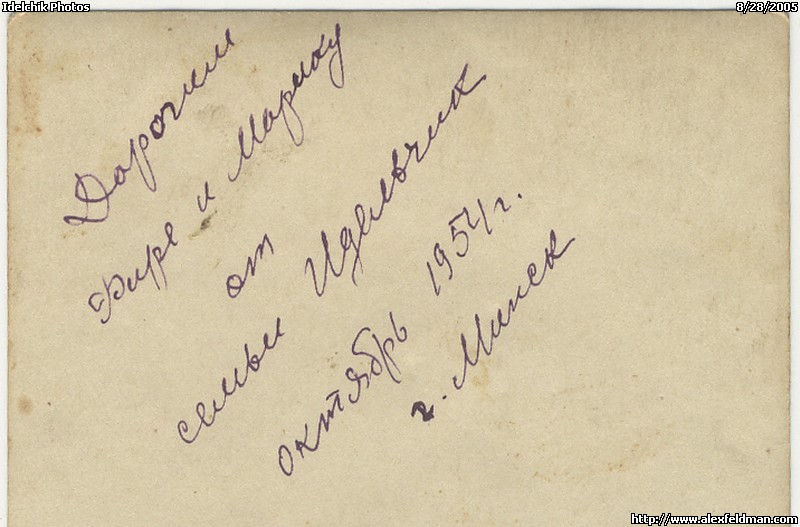 Idelchik Photos
8/28/2005
Дорогим
Фире и Марику
от
семьи Идельчик
октябрь 1954 г.
г. Минск
http://www.alexfeldman.com